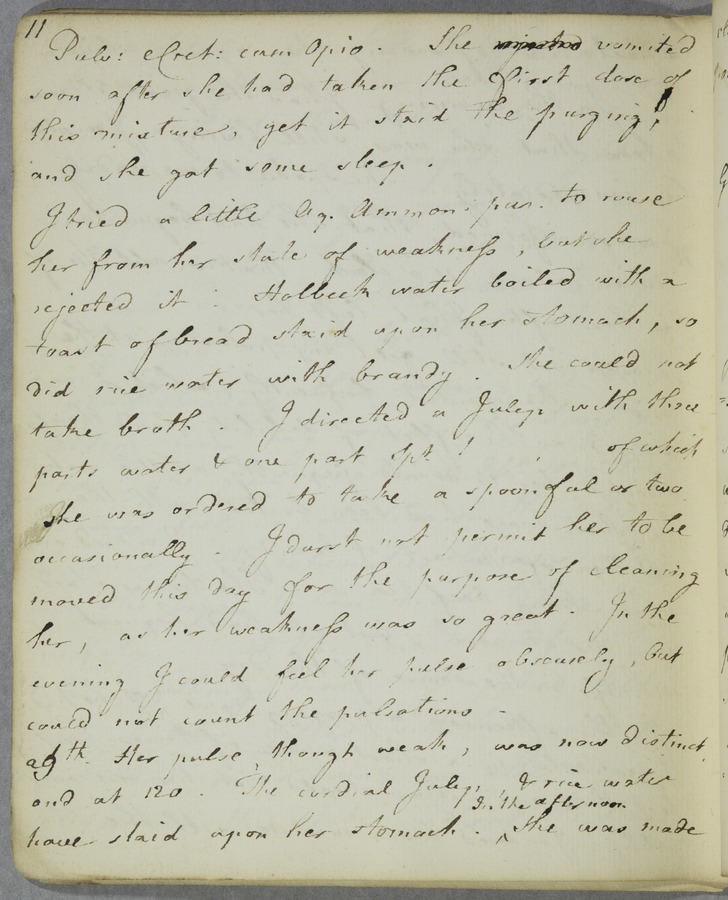 11
Pulv: e Cret: cum Opio. She vomited
soon after she had taken the first dose of
this mixture, yet it staid the purging,
and she got some sleep.
I tried a little Aq. Ammon: pur. to rouse
her from her state of weakness, but she
rejected it: Holbeck water boiled with a
toast of bread staid upon her stomach, so
did rice water with brandy. She could not
take broth. I directed a Julep with three
parts water & one part Spt ! . of which
She was ordered to take a spoonful or two
occasionally. I durst not permit her to be
moved this day for the purpose of cleaning
her, as her weakness was so great. In the
evening I could feel her pulse obscurely, but
could not count the pulsations -
29th. Her pulse, though weak, was now distinct,
and at 120. The cordial Julep, & rice water
In the afternoon
have staid upon her stomach. ^ She was made